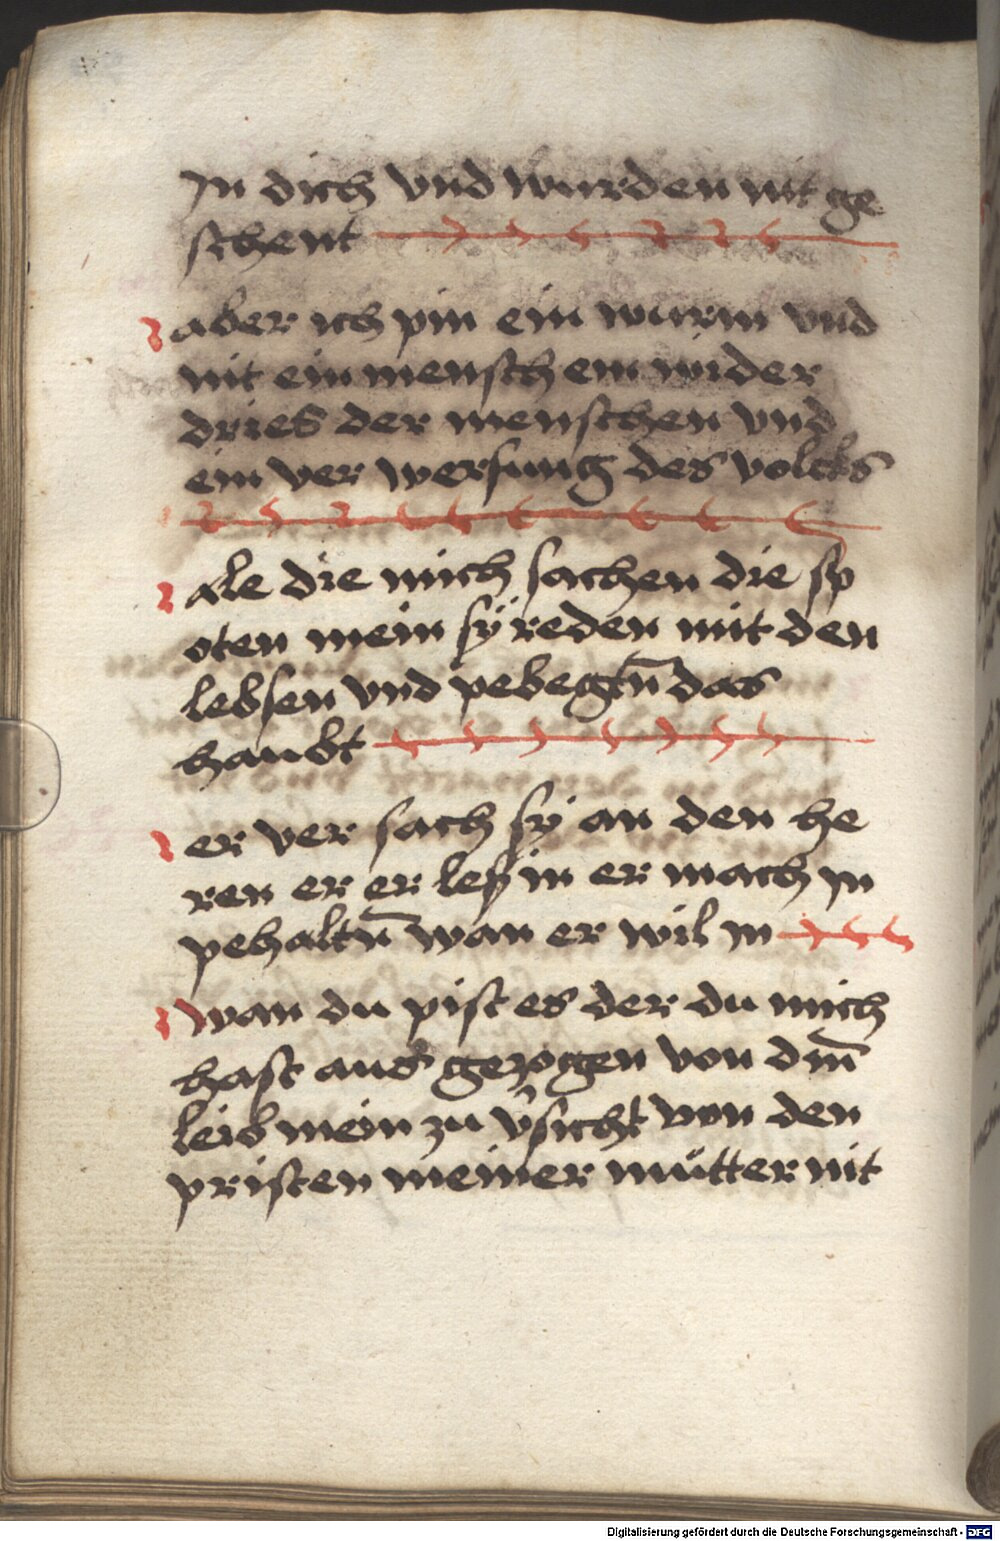 In dich vnd wurden nit ge
schent
aber ich pin ein wurm vnd
nit ein mensch ein wider
dries der menschen vnd
ein ver wersung des volcks
Ale die mich sachen die sp
oten mein sÿ reden mit den
lebsen vnd pebegtn̄ das
haubt
er ver sach sÿ an den he
ren er er leß in er mach in
pehaltn̄ wan er wil in
wan du pist es der du mich
hast aus gezogen von dm̄
leib mein zu v̂sicht von den
pristen meiner mu̇tter nit
Digitalisierung gefördert durch die Deutsche Forschungsgemeinschaft - DFG